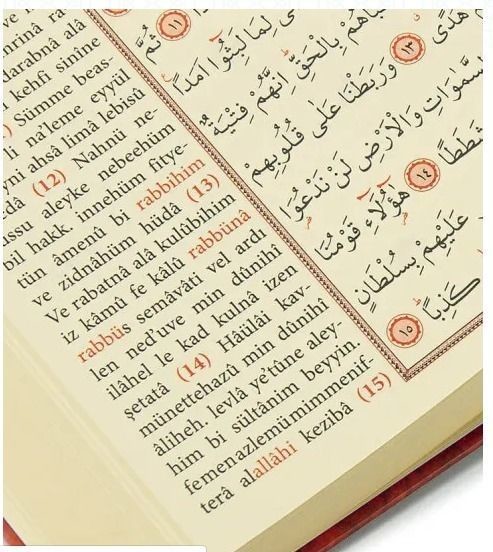 darabnâ alâ
kehfi sinîne
) Sümme beas-
li na'leme eyyül
ahsa limâ lebisû
(12) Nahnü ne-
aleyke nebeehüm
bil hakk, innehüm fitye-
tün âmenû bi rabbihim
ve zidnâhüm hüdâ (13)
Ve rabatnâ alâ kulûbihim
iz kâmû fe kâlû rabbünâ
rabbüs semâvâti vel ardı
len ned'uve min dûnihî
ilâhel le kad kulnâ izen
şetatâ (14) Hâülâi kav-
münettehazû min dûnihî
âliheh, levlâ ye'tûne aley-
him bi sültânim beyyin.
femenazlemümimmenif-
terâ alallâhi kezibâ (15)
لِمَا لَبِثُٓوا اَمَدًا ﴿١٢﴾
بِالْحَقِّ اِنَّهُمْ فِتْيَةٌ
هُدًى ﴿١٣﴾ وَرَبَطْنَا عَلٰى قُلُوبِهِمْ
السَّمٰوَاتِ وَالْاَرْضِ لَنْ نَدْعُوَا۬
شَطَطًا ﴿١٤﴾ هٰٓؤُ۬لَٓاءِ قَوْمُنَا
عَلَيْهِمْ بِسُلْطَانٍ
كَذِبًا ﴿١٥﴾